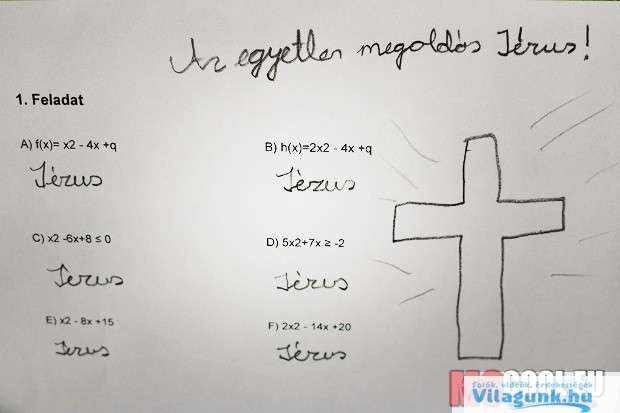 Az egyetlen megoldás Jézus!
1. Feladat
A) f(x)= x2 - 4x +q
B) h(x)=2x2 - 4x +q
Jézus
Jézus
C) x2 -6x+8 ≤ 0
D) 5x2+7x ≥ -2
Jezus
Jézus
E) x2 - 8x +15
F) 2x2 - 14x +20
Jezus
Jézus
Fotók, videók, érdekességek
Vilagunk.hu